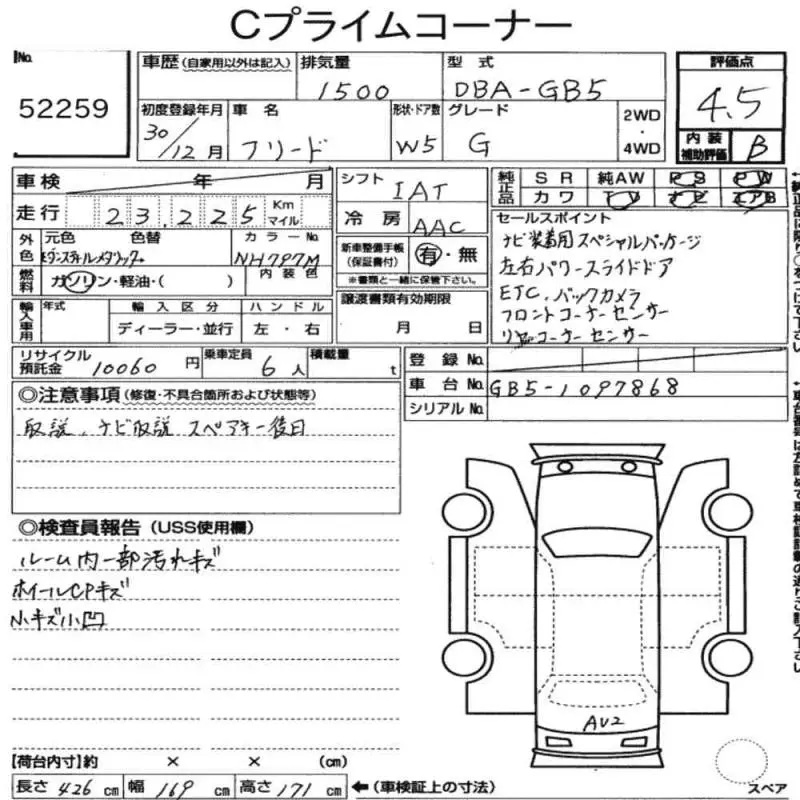 Cプライムコーナー
No. 52259
車歴 (自家用以外は記入) 排気量 1500 型式 DBA-GB5
初度登録年月 30/12月 車名 フリード 形状・ドア数 W5 グレード G 2WD・4WD
評価点 4.5
内装補助評価 B
車検 年 月
走行 23,225 Km マイル
外色 元色 色替 カラーNo.
モダンスチールメタリック NH797M
燃料 ガソリン・軽油・( ) 内装色
輸入車用 年式 輸入区分 ハンドル
ディーラー・並行 左・右
シフト IAT
冷房 AAC
新車整備手帳 (保証書付) 有・無
※書類と一緒に保管下さい。
譲渡書類有効期限
月 日
純正品 SR 純AW PS PW
カワ TV ナビ エアB
セールスポイント
ナビ装着用スペシャルパッケージ
左右パワースライドドア
ETC、バックカメラ
フロントコーナーセンサー
リヤコーナーセンサー
リサイクル預託金 10060 円 乗車定員 6 人 積載量 t
登録No.
車台No. GB5-1097868
シリアルNo.
◎注意事項 (修復・不具合箇所および状態等)
取説、ナビ取説 スペアキー後日
◎検査員報告 (USS使用欄)
ルーム内一部汚れキズ
ホイールCPキズ
小キズ小凹
AU2
【荷台内寸】約 × × (cm)
長さ 426 cm 幅 169 cm 高さ 171 cm ←(車検証上の寸法)
スペア